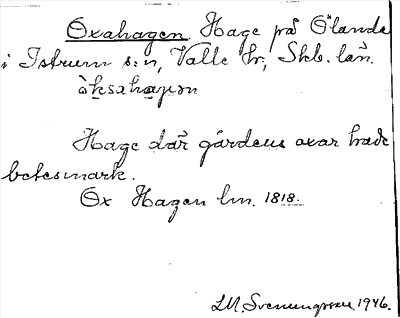 Oxahagen. Hage på Ölanda
i Istrum s:n, Valle hr, Skb. län.
Hage där gårdens oxar hade
betesmark.
Ox Hagen lm. 1818.
L.M. Svenungsson 1946.